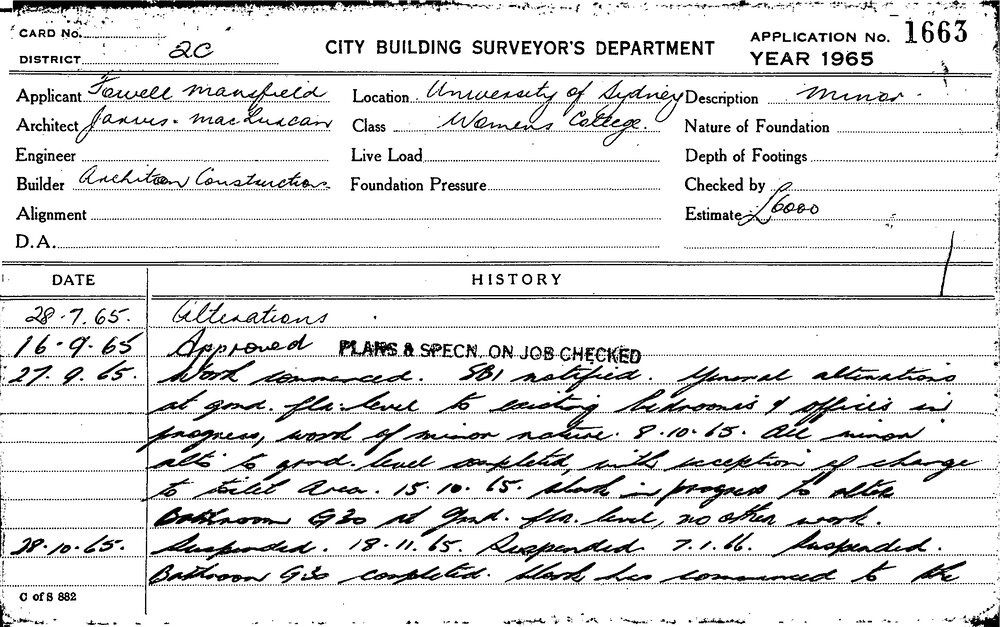 CARD No.
DISTRICT 2C
CITY BUILDING SURVEYOR'S DEPARTMENT
APPLICATION No. 1663
YEAR 1965
Applicant Fowell Mansfield
Location University of Sydney
Description Minor.
Architect Jarvis. MacLurcan
Class Womens College.
Nature of Foundation
Engineer
Live Load
Depth of Footings
Builder Constructions
Foundation Pressure
Checked by
Alignment
Estimate £6000
D.A.
DATE
HISTORY
28.7.65. Alterations
16.9.65 Approved PLANS & SPECN. ON JOB CHECKED
27.9.65. Work commenced. SBI notified. General alterations
at grnd. flr. level to existing bedrooms & offices in
progress, work of minor nature. 8.10.65. All minor
alts to grnd. level completed, with exception of change
to toilet area. 15.10.65. Work in progress to alter
Bathroom G30 at grnd. flr. level, no other work.
28.10.65. Suspended. 18.11.65. Suspended. 7.1.66. Suspended.
Bathroom G30 completed. Work has commenced to the
C of S 882